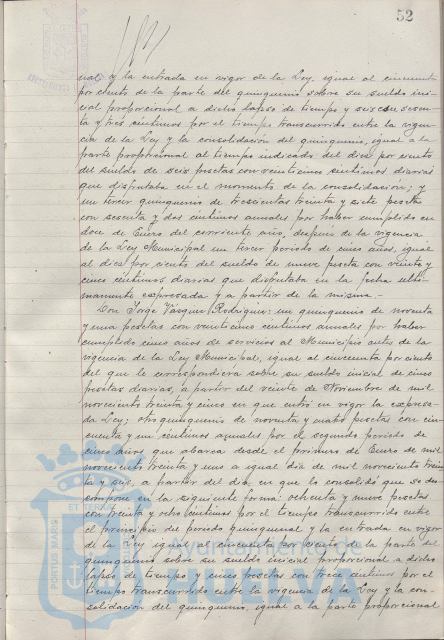 52
ual y la entrada en vigor de la Ley, igual al cincuenta
por ciento de la parte del quinquenio sobre su sueldo ini-
cial proporcional a dicho lapso de tiempo y seis con sesen-
ta y tres centimos por el tiempo transcurrido entre la vigen-
cia de la Ley y la consolidación del quinquenio, igual a la
parte proporcional al tiempo indicado del diez por ciento
del sueldo de seis pesetas con veinticinco centimos diarias
que disfrutaba en el momento de la consolidación; y
un tercer quinquenio de trescientas treinta y siete pesetas
con sesenta y dos centimos anuales por haber cumplido en
doce de Enero del corriente año, despues de la vigencia
de la Ley Municipal un tercer periodo de cinco años, igual
al diez por ciento del sueldo de nueve pesetas con veinte y
cinco centimos diarias que disfrutaba en la fecha ulti-
mamente expresada y a partir de la misma.-
Don Jorge Vasquez Rodriguez: un quinquenio de noventa
y una pesetas con veinticinco centimos anuales por haber
cumplido cinco años de servicios al Municipio antes de la
vigencia de la Ley Municipal, igual al cincuenta por ciento
del que le correspondiera sobre su sueldo inicial de cinco
pesetas diarias, a partir del veinte de Noviembre de mil
novecientos treinta y cinco en que entró en vigor la expresa-
da Ley; otro quinquenio de noventa y cuatro pesetas con cin-
cuenta y un centimos anuales por el segundo periodo de
cinco años que abarca desde el primero de Enero de mil
novecientos treinta y uno a igual dia de mil novecientos trein-
ta y seis, a partir del dia en que lo consolidó que se des-
compone en la siguiente forma: ochenta y nueve pesetas
con treinta y ocho centimos por el tiempo transcurrido entre
el principio del periodo quinquenal y la entrada en vigor
de la Ley igual al cincuenta por ciento de la parte del
quinquenio sobre su sueldo inicial proporcional a dicho
lapso de tiempo y cinco pesetas con trece centimos por el
tiempo transcurrido entre la vigencia de la Ley y la con-
solidación del quinquenio, igual a la parte proporcional
PORTUS MARIS
ET
Ayuntamiento de
HUELVA